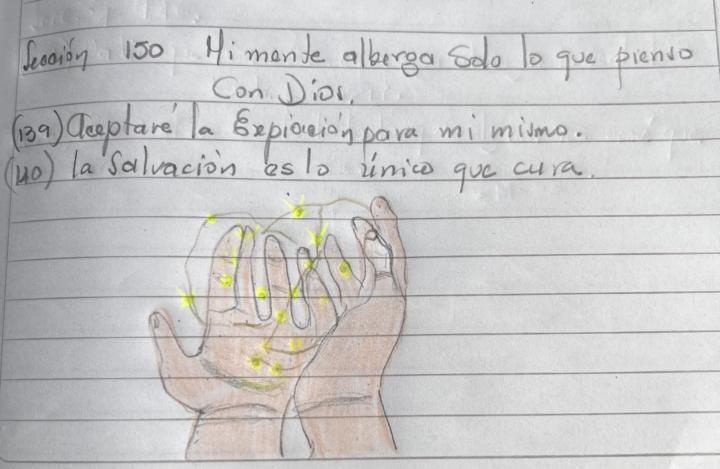 Lección 150 Mi mente alberga Solo lo que pienso
Con Dios.
(139) Aceptaré la Expiación para mi mismo.
(140) la Salvación es lo único que cura.